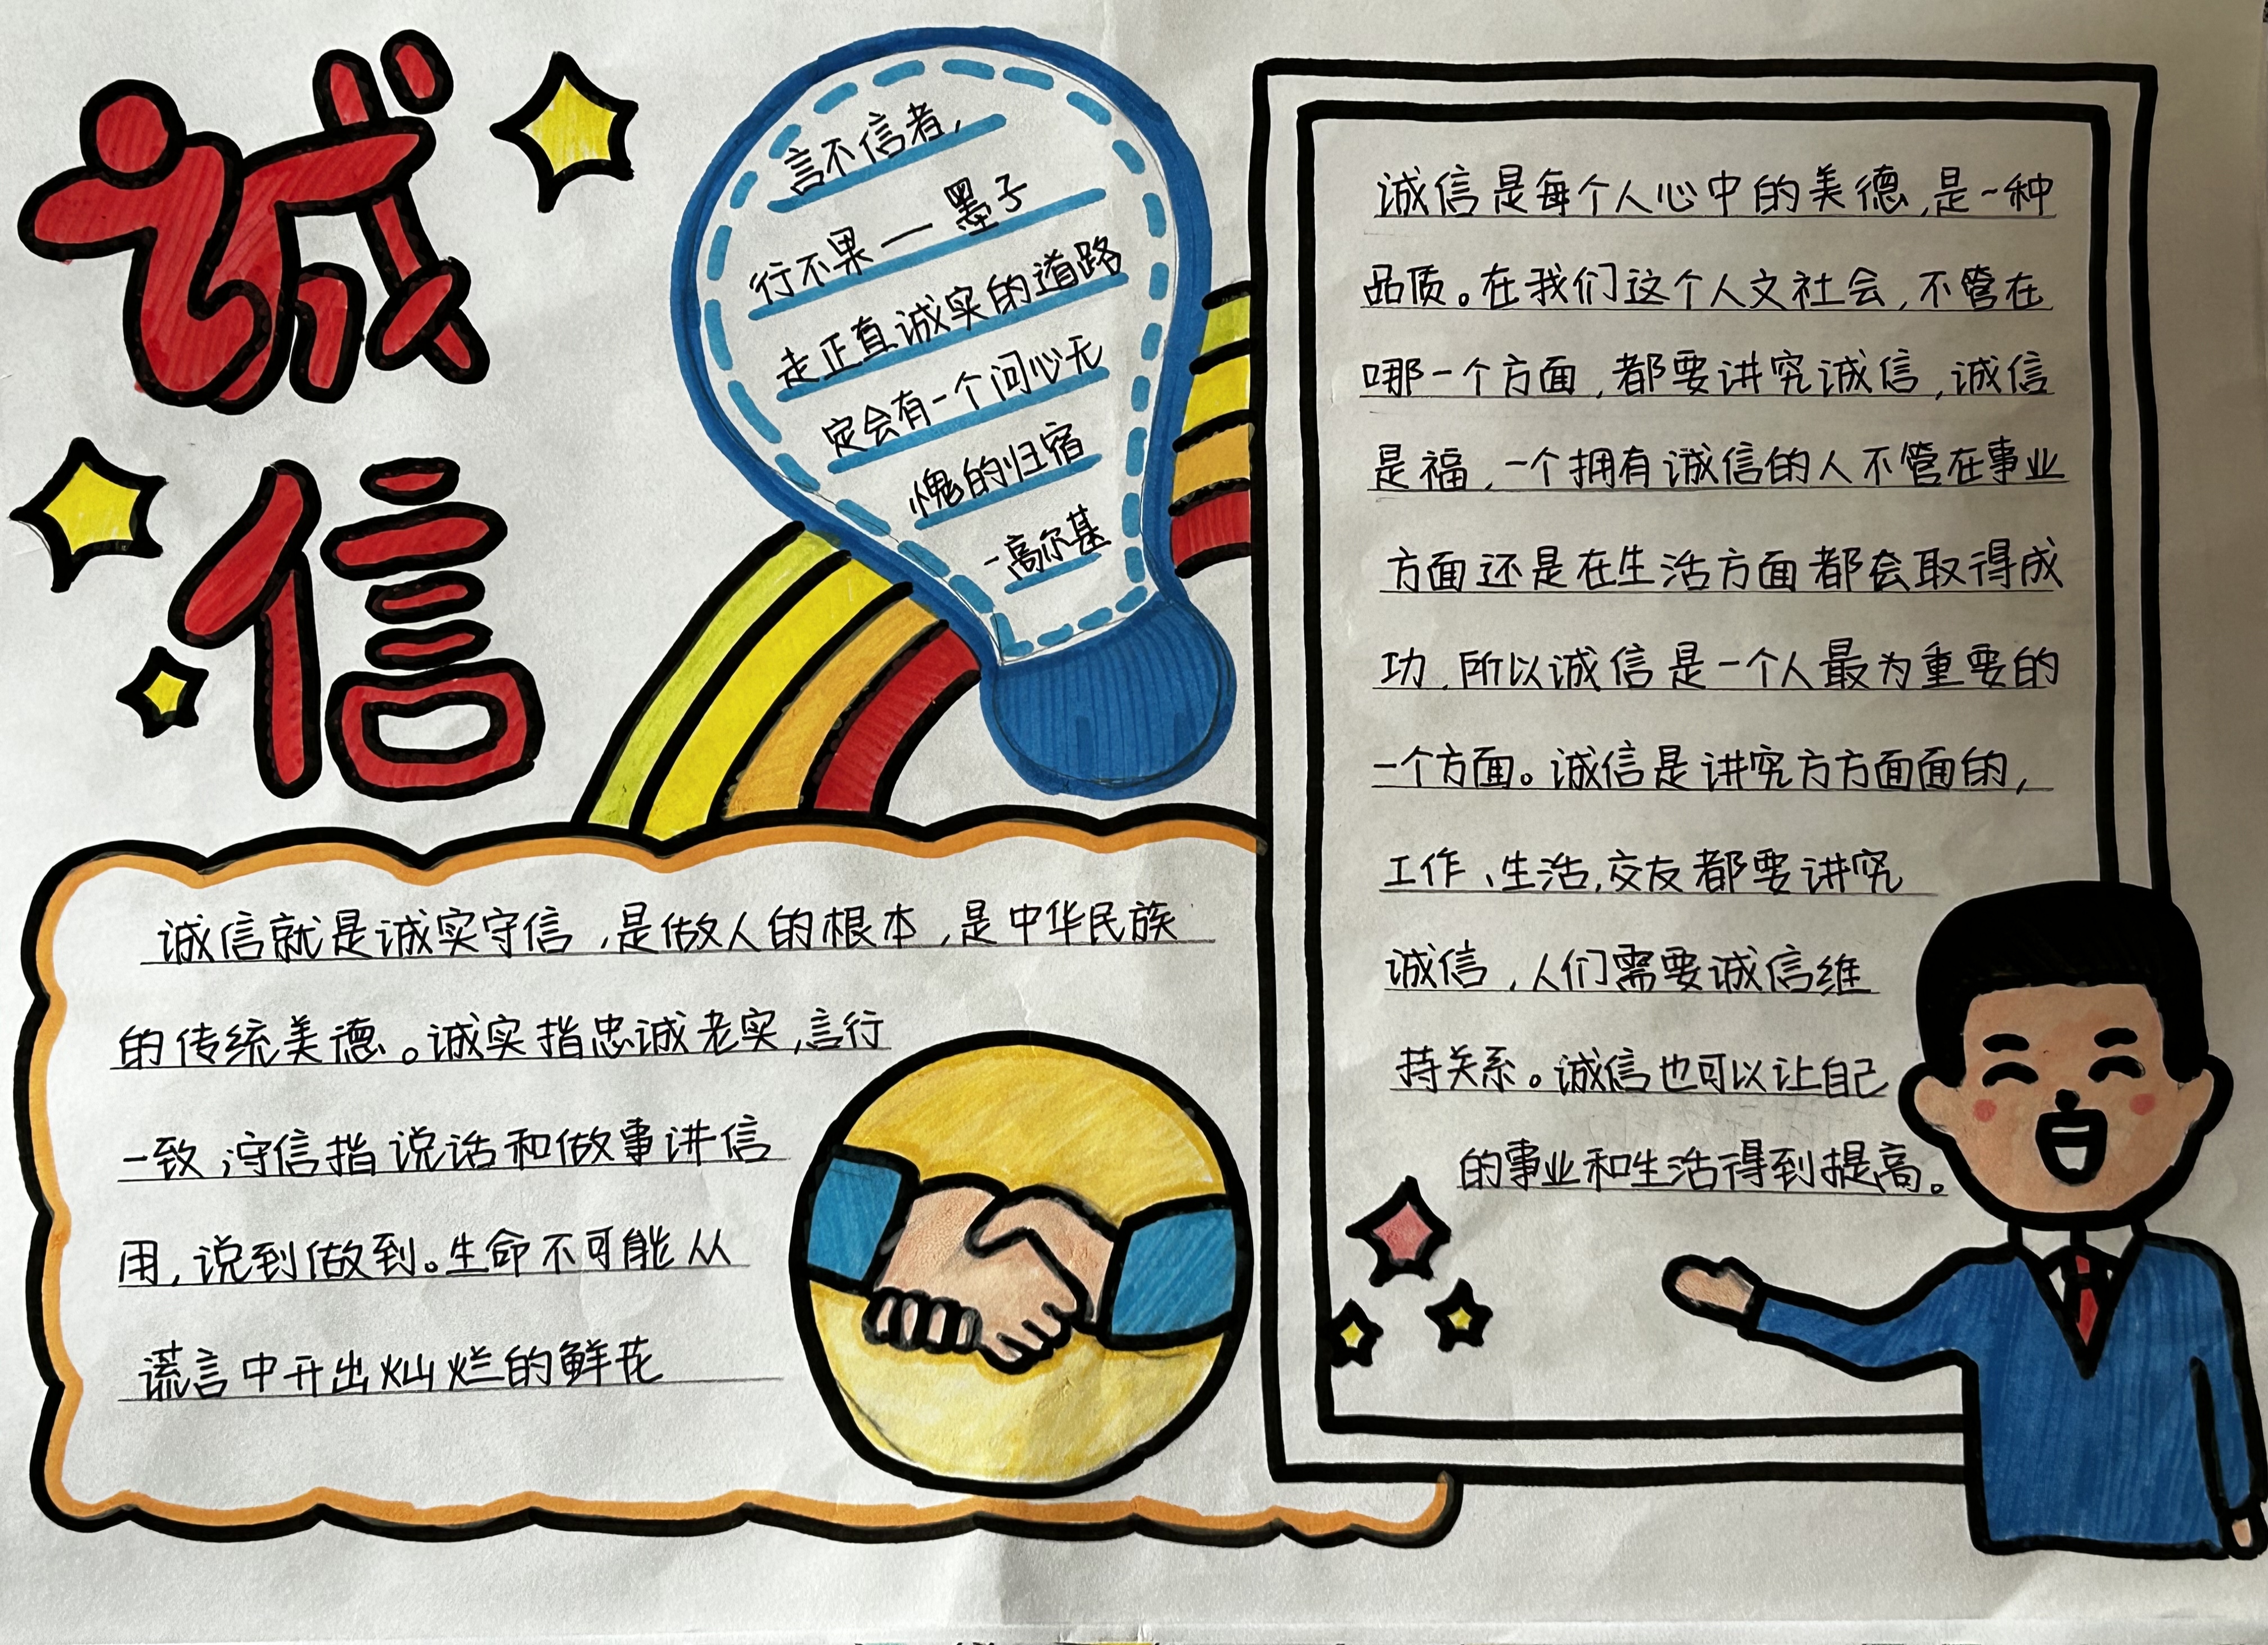 诚
信
言不信者，
行不果 — 墨子
走正直诚实的道路
定会有一个问心无
愧的归宿
-高尔基
诚信就是诚实守信，是做人的根本，是中华民族
的传统美德。诚实指忠诚老实，言行
一致；守信指说话和做事讲信
用，说到做到。生命不可能从
谎言中开出灿烂的鲜花
诚信是每个人心中的美德，是一种
品质。在我们这个人文社会，不管在
哪一个方面，都要讲究诚信，诚信
是福，一个拥有诚信的人不管在事业
方面还是在生活方面都会取得成
功，所以诚信是一个人最为重要的
一个方面。诚信是讲究方方面面的，
工作、生活，交友都要讲究
诚信，人们需要诚信维
持关系。诚信也可以让自己
的事业和生活得到提高。